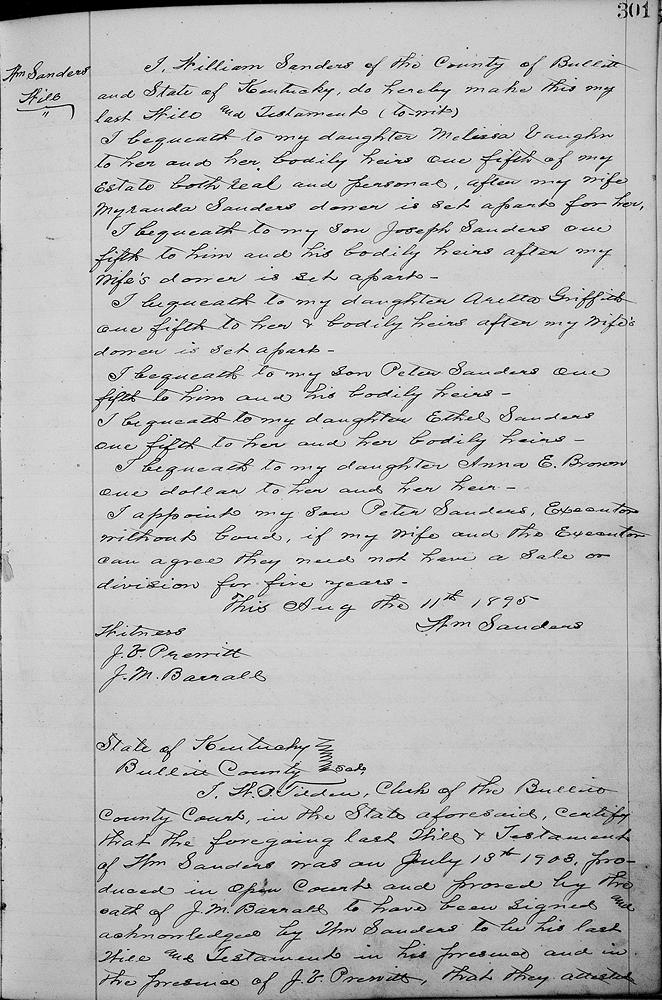 301
Wm Sanders
Will
"
I, William Sanders of the County of Bullitt
and State of Kentucky, do hereby make this my
last Will and Testament (to-wit)
I bequeath to my daughter Melissa Vaughn
to her and her bodily heirs one fifth of my
Estate both real and personal, after my wife
Myranda Sanders dower is set apart for her,
I bequeath to my son Joseph Sanders one
fifth to him and his bodily heirs after my
Wife's dower is set apart -
I bequeath to my daughter Aretta Griffith
one fifth to her & bodily heirs after my Wife's
dower is set apart -
I bequeath to my son Peter Sanders one
fifth to him and his bodily heirs -
I bequeath to my daughter Ethel Sanders
one fifth to her and her bodily heirs -
I bequeath to my daughter Anna E. Brown
one dollar to her and her heir -
I appoint my son Peter Sanders, Executor
without bond, if my wife and the Executor
can agree they need not have a sale or
division for five years -
This Aug the 11th 1895
Witness
Wm Sanders
J. V. Prewitt
J. M. Barrall
State of Kentucky
Bullitt County Sct,
I, W. P. Tilden, Clerk of the Bullitt
County Court, in the State aforesaid, certify
that the foregoing last Will & Testament
of Wm Sanders was on July 13th 1903, pro-
duced in Open Court and proved by the
oath of J. M. Barrall to have been signed and
acknowledged by Wm Sanders to be his last
Will and Testament in his presence and in
the presence of J. V. Prewitt, that they attested